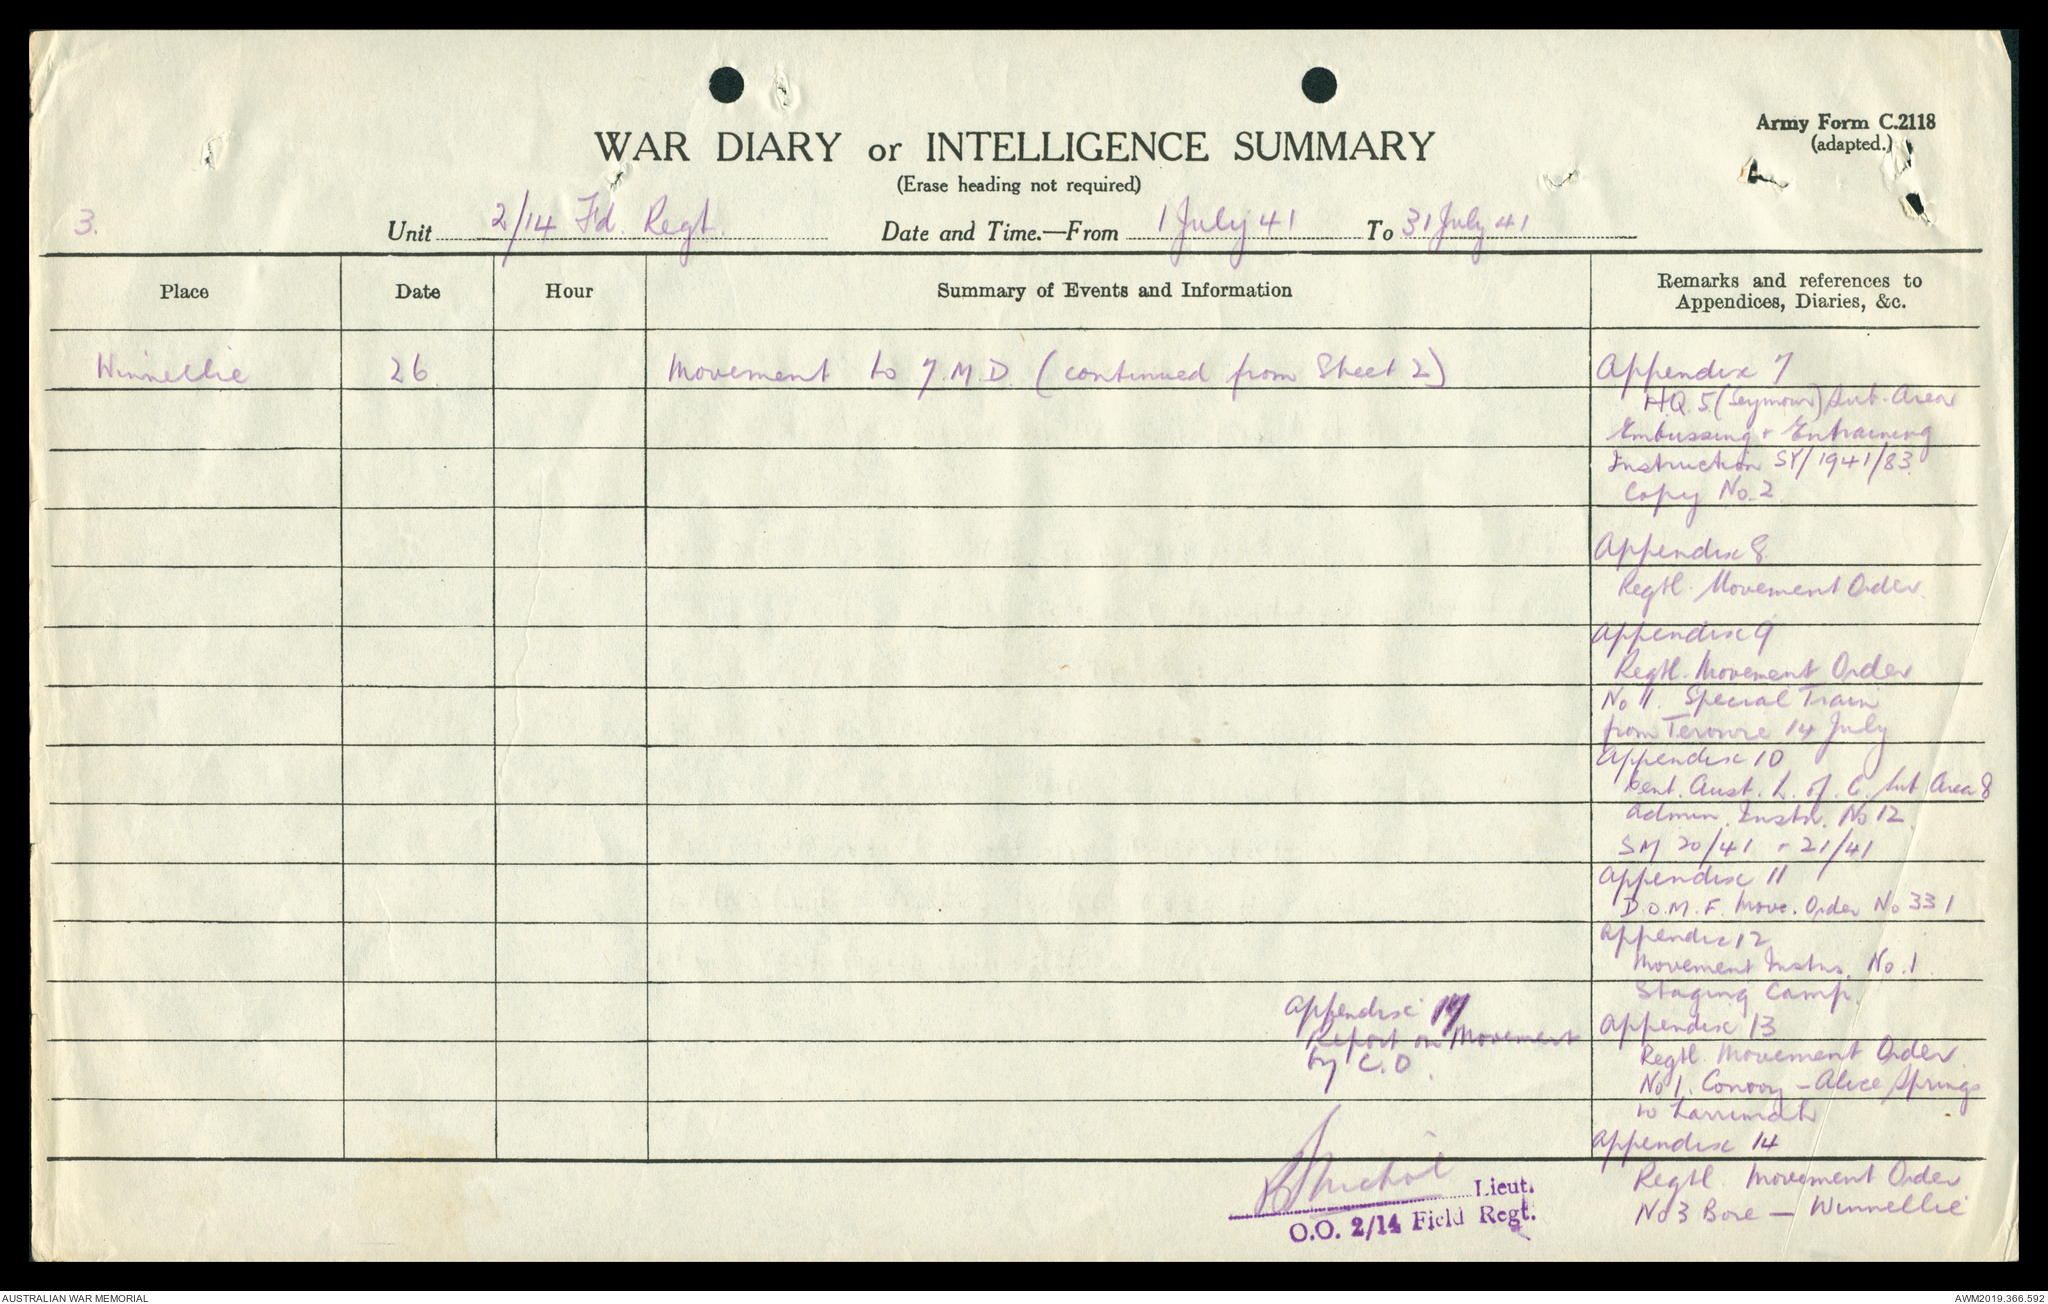 WAR DIARY or INTELLIGENCE SUMMARY
Army Form C.2118
(adapted.)
(Erase heading not required)
3.
Unit 2/14 Fd. Regt. Date and Time.—From 1 July 41 To 31 July 41
Place Date Hour Summary of Events and Information Remarks and references to
Appendices, Diaries, &c.
Winnellie 26 Movement to 7.M.D. (continued from Sheet 2)
Appendix 7
H.Q. 5 (Seymour) Sub-Area
Embussing & Entraining
Instruction SY/1941/83.
Copy No. 2
Appendix 8.
Regtl. Movement Order.
Appendix 9
Regtl. Movement Order
No 11. Special Train
from Terowie 14 July
Appendix 10
Cent. Aust. L. of C. Sub Area 8
Admin. Instn. No 12.
SM 20/41 & 21/41
Appendix 11
D.O.M.F. Move. Order No 331
Appendix 12
Movement Instns. No. 1
Staging Camp.
Appendix 13
Regtl. Movement Order.
No 1. Convoy - Alice Springs
to Larrimah
Appendix 14
Regtl. Movement Order
No 3 Bore - Winnellie
Appendix
Report on Movement
by C.O.
Lieut.
O.O. 2/14 Field Regt.
AUSTRALIAN WAR MEMORIAL
AWM2019.366.592